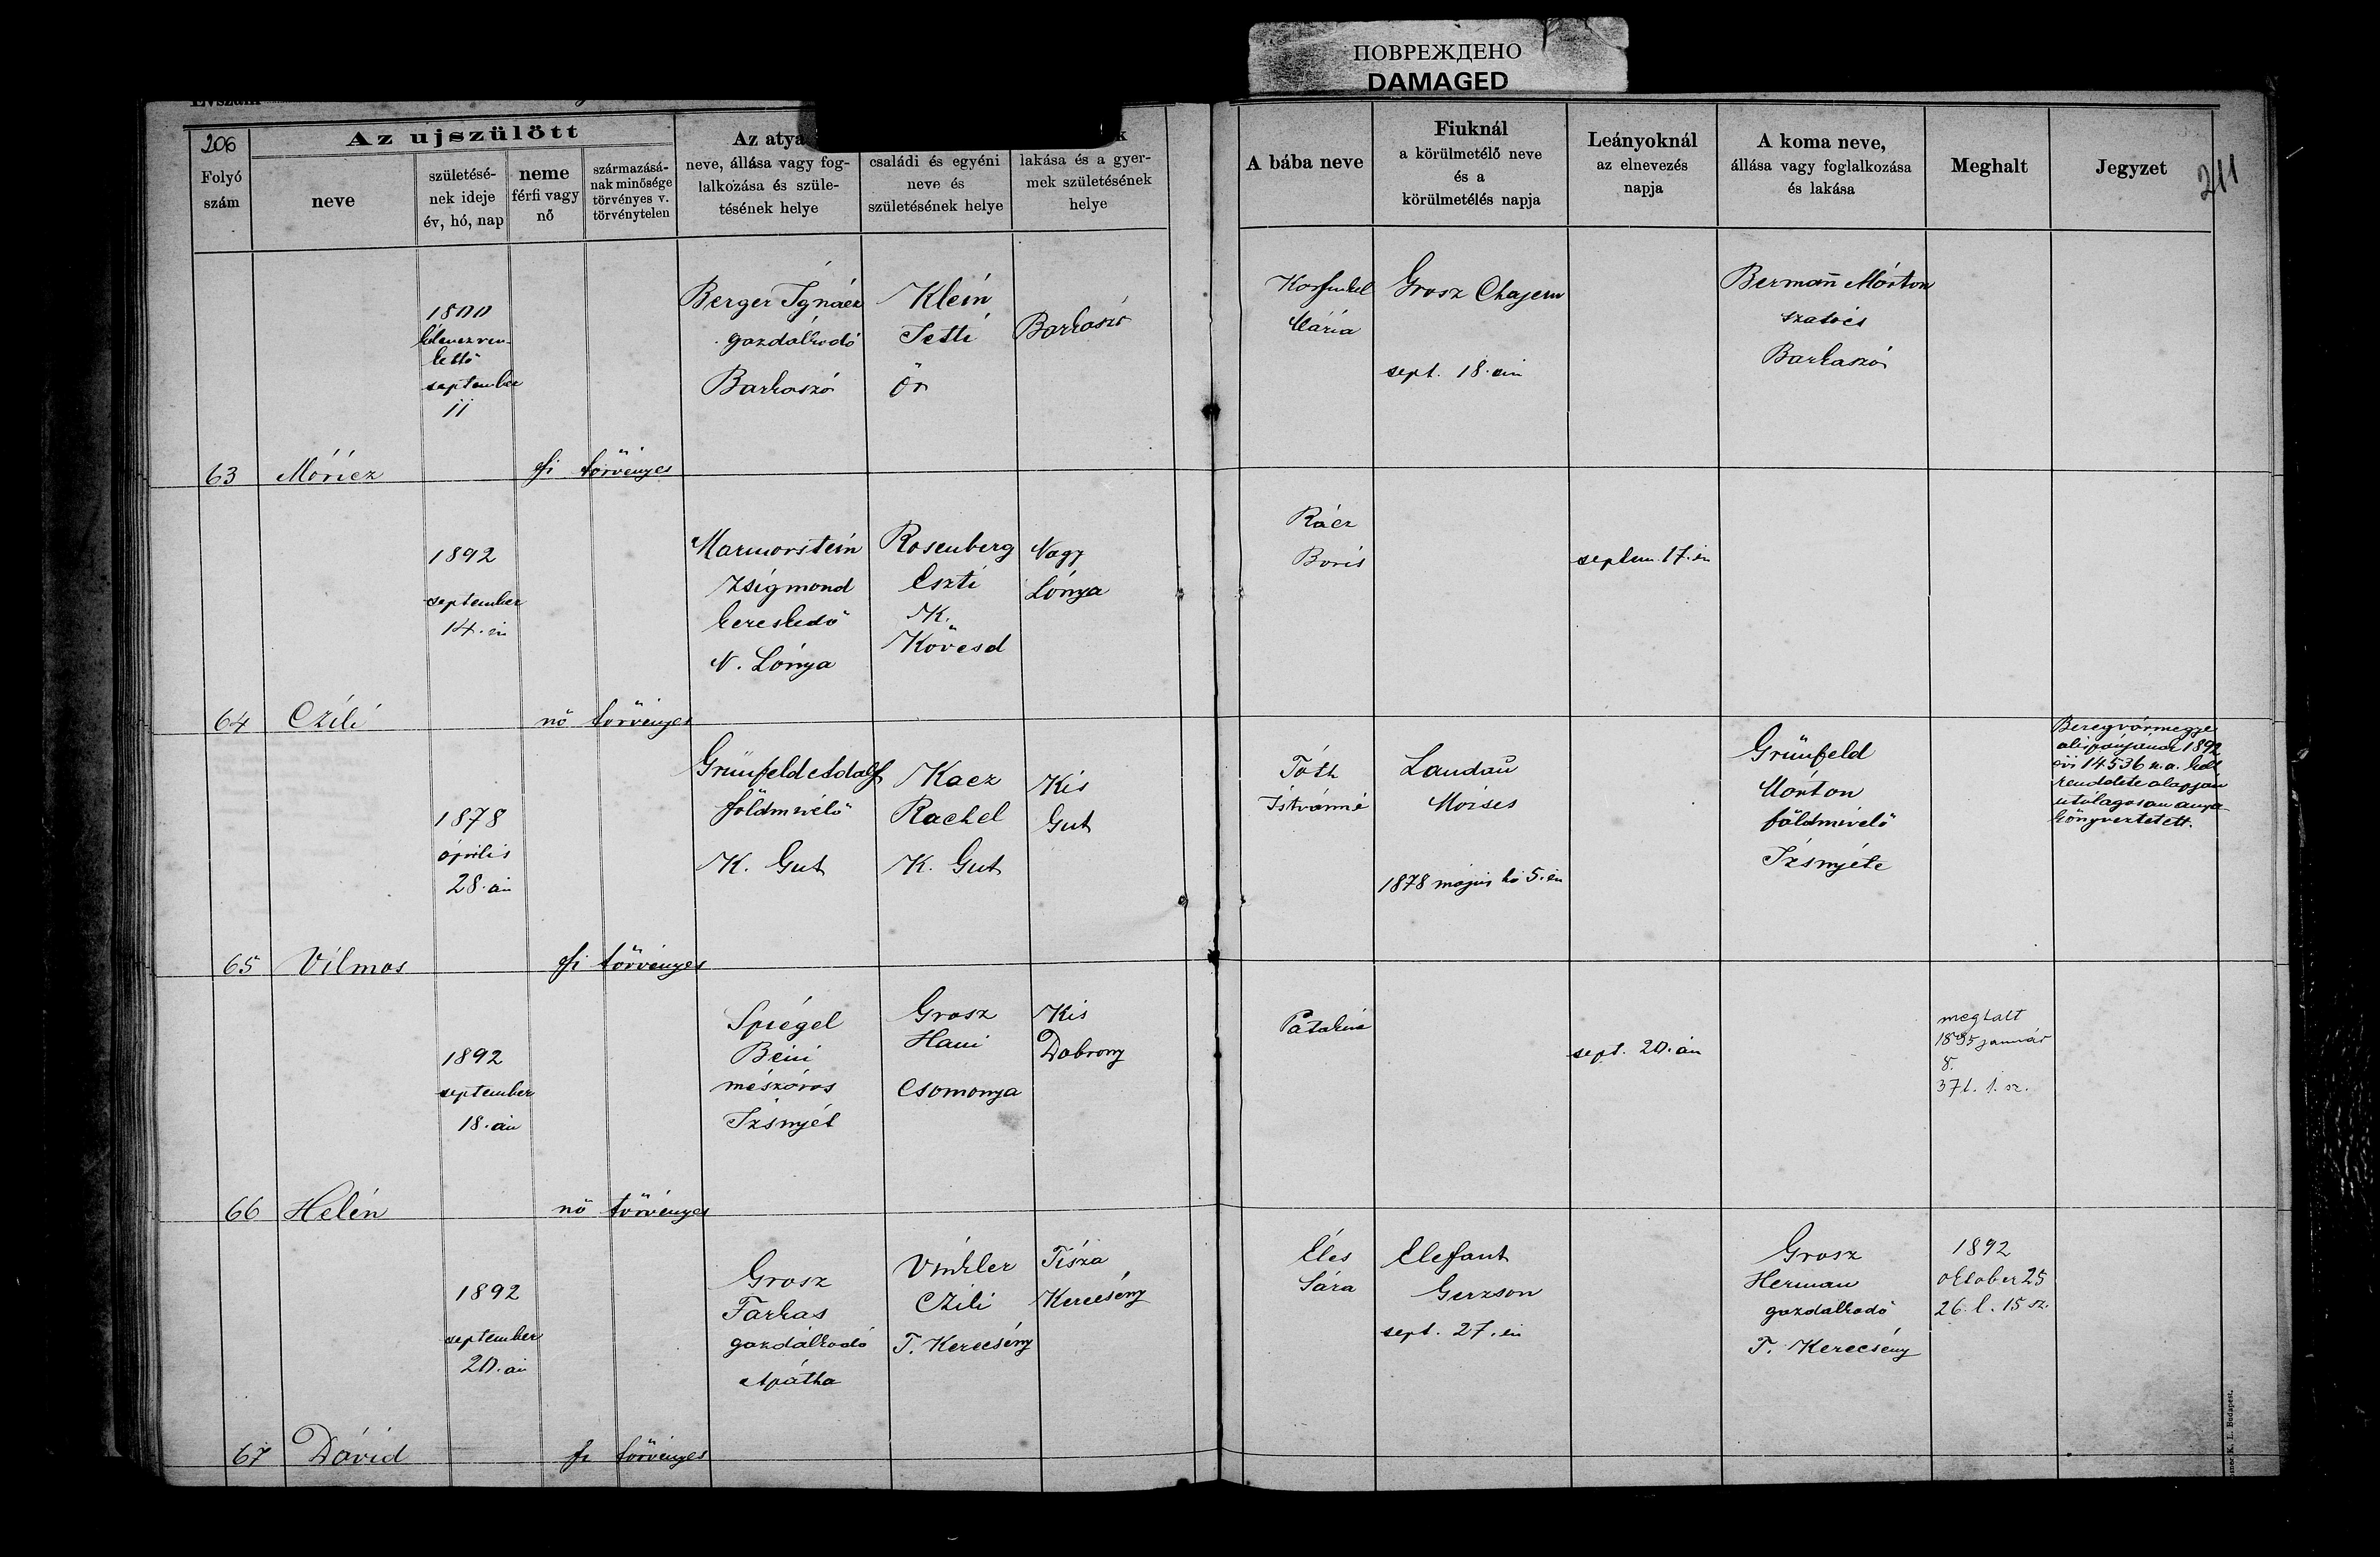 ПОВРЕЖДЕНО
DAMAGED
206
Az ujszülött
Folyó
szám
neve
születésé-
nek ideje
év, hó, nap
neme
férfi vagy
nő
származásá-
nak minősége
törvényes v.
törvénytelen
Az atya
neve, állása vagy fog-
lalkozása és szüle-
tésének helye
családi és egyéni
neve és
születésének helye
k
lakása és a gyer-
mek születésének
helye
A bába neve
Fiuknál
a körülmetélő neve
és a
körülmetélés napja
Leányoknál
az elnevezés
napja
A koma neve,
állása vagy foglalkozása
és lakása
Meghalt
Jegyzet
211
63
Móricz
september
11
fi
törvényes
Berger Ignácz
gazdálkodó
Barkaszó
Klein
Őr
Barkaszó
Mária
Grosz Chajem
sept. 18.án
Bermann Márton
szatócs
Barkaszó
64
Czili
1892
september
14.én
nő
törvényes
Marmorstein
Zsigmond
kereskedő
N. Lónya
Rosenberg
Eszti
K.
Kövesd
Nagy
Lónya
Rácz
Boris
septem. 17.én
65
Vilmos
1878
április
28.án
fi
törvényes
Grünfeld Adolf
földmivélő
K. Gut
Kacz
Rachel
K. Gut
Kis
Gut
Tóth
Istvánné
Landau
Moises
1878 május hó 5.én
Grünfeld
Márton
földmivelő
Izsnyéte
Beregvármegye
alispánjának 1892
évi 14536 sz.a. kelt
rendelete alapján
utólagosan anya-
könyveztetett.
66
Helén
1892
september
18.án
nő
törvényes
Spiegel
Béni
mészáros
Izsnyét
Grosz
Hani
Csomonya
Kis
Dobrony
Patakiné
sept. 20.án
meghalt
1895 január
8.
37 l. 1. sz.
67
Dávid
1892
september
20.án
fi
törvényes
Grosz
Farkas
gazdálkodó
Apátha
Vinkler
Czili
T. Kerecsény
Tisza
Kerecsény
Éles
Sára
Elefant
Gerzson
sept. 27.én
Grosz
Herman
gazdálkodó
T. Kerecsény
1892
oktober 25
26. l. 15 sz.
K. L. Budapest.